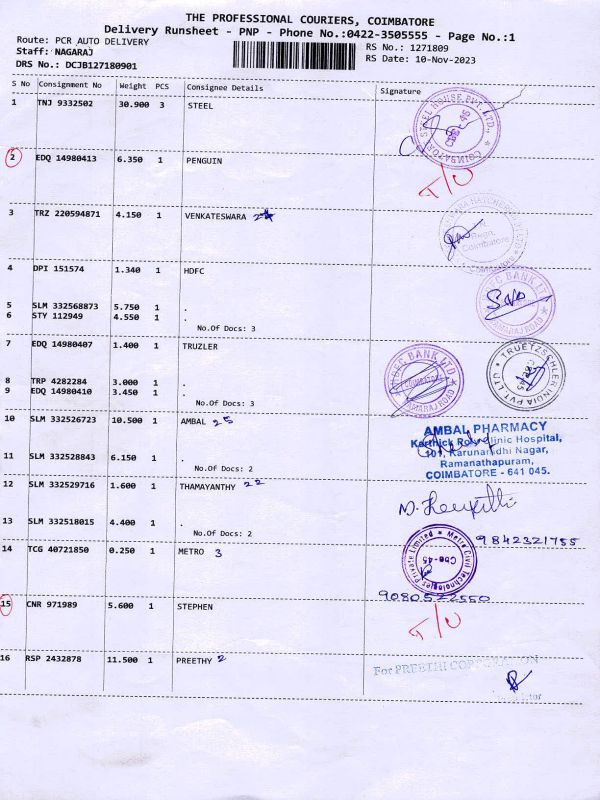 THE PROFESSIONAL COURIERS, COIMBATORE
Delivery Runsheet - PNP - Phone No.:0422-3505555 - Page No.:1
Route: PCR AUTO DELIVERY RS No.: 1271809
Staff: NAGARAJ RS Date: 10-Nov-2023
DRS No.: DCJB127180901
S No Consignment No Weight PCS Consignee Details Signature
1 TNJ 9332502 30.900 3 STEEL
STEEL HOUSE PVT. LTD., COIMBATORE CBE-45
2 EDQ 14980413 6.350 1 PENGUIN
T/U
3 TRZ 220594871 4.150 1 VENKATESWARA 24
Coimbatore
COIMBATORE
4 DPI 151574 1.340 1 HDFC
5 SLM 332568873 5.750 1 .
6 STY 112949 4.550 1 .
No.Of Docs: 3
HDFC BANK LTD KAMARAJ ROAD
7 EDQ 14980407 1.400 1 TRUZLER
HDFC BANK LTD KAMARAJ ROAD
TRUETZSCHLER INDIA PVT. LTD
8 TRP 4282284 3.000 1 .
9 EDQ 14980410 3.450 1 .
No.Of Docs: 3
10 SLM 332526723 10.500 1 AMBAL 25
AMBAL PHARMACY
Karthick Polyclinic Hospital,
101, Karunanidhi Nagar,
Ramanathapuram,
COIMBATORE - 641 045.
11 SLM 332528843 6.150 1 .
No.Of Docs: 2
12 SLM 332529716 1.600 1 THAMAYANTHY 22
13 SLM 332518015 4.400 1 .
No.Of Docs: 2
9842321755
14 TCG 40721850 0.250 1 METRO 3
Metro Civil Technologies Private Limited Cbe-45
9080522550
15 CNR 971989 5.600 1 STEPHEN
T/U
16 RSP 2432878 11.500 1 PREETHY 2
For PREETHI CORPORATION